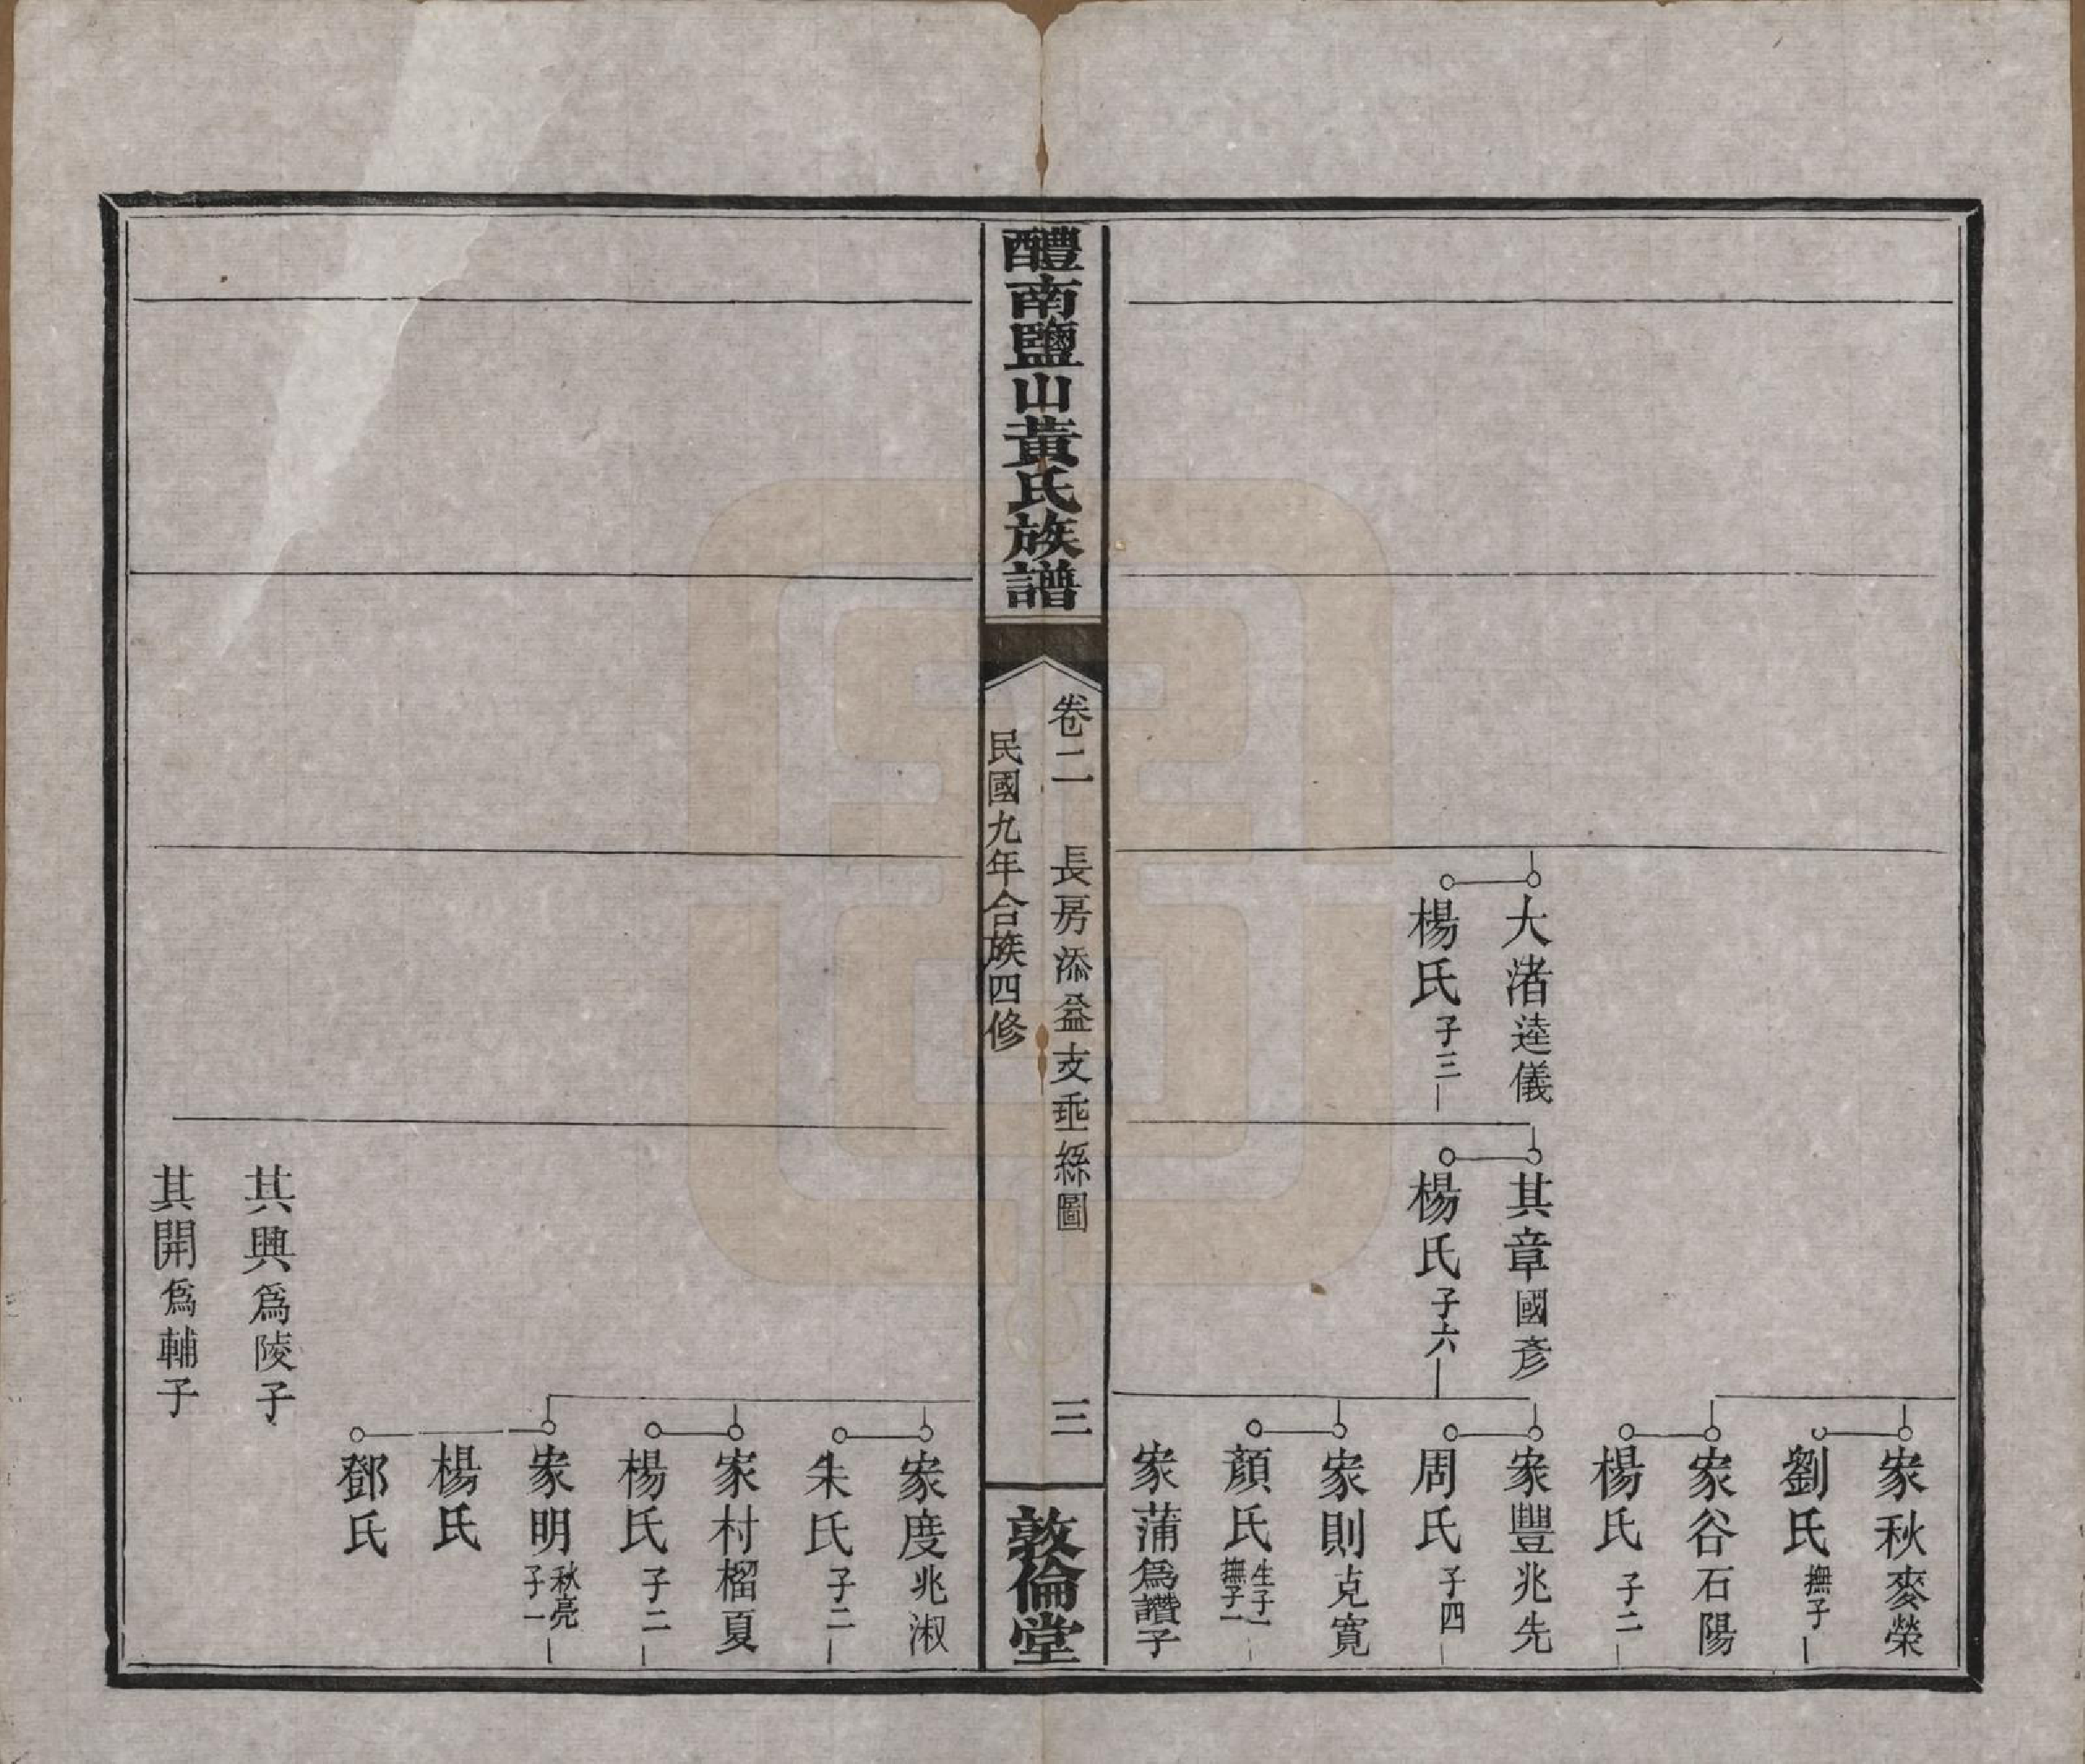 大渚逵儀
楊氏子三
其章國彥
楊氏子六
家秋麥榮
劉氏撫子一
家谷石陽
楊氏子二
家豐兆先
周氏子四
家則克寬
顏氏生子一撫子一
家蒲爲讚子
醴南鹽山黃氏族譜
卷二 長房添益支垂絲圖 三
民國九年合族四修
敦倫堂
家度兆淑
朱氏子二
家村榴夏
楊氏子二
家明秋亮子一
楊氏
鄧氏
其興爲陵子
其開爲輔子